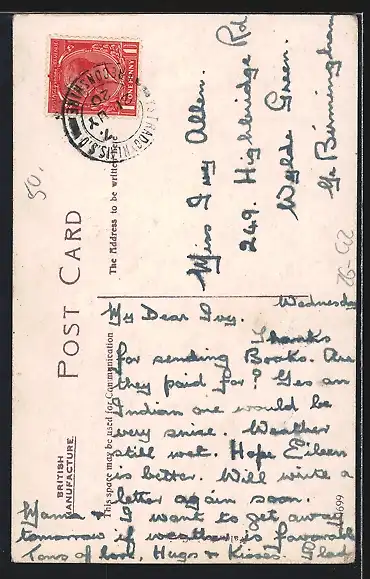 POST CARD
BRITISH
MANUFACTURE.
This space may be used for Communication
The Address to be written
ONE PENNY
50.
Miss Ivy Allen.
249. Highbridge Rd
Wylde Green.
Nr Birmingham
Wednesday
My Dear Ivy.
Thanks
for sending Books. Are
they paid for? Yes an
Indian one would be
very nice. Weather
still wet. Hope Eileen
is better. Will write a
letter again soon.
Mama & I want to get away
tomorrow if weather is favorable
Tons of love, Hugs & Kisses. Glad